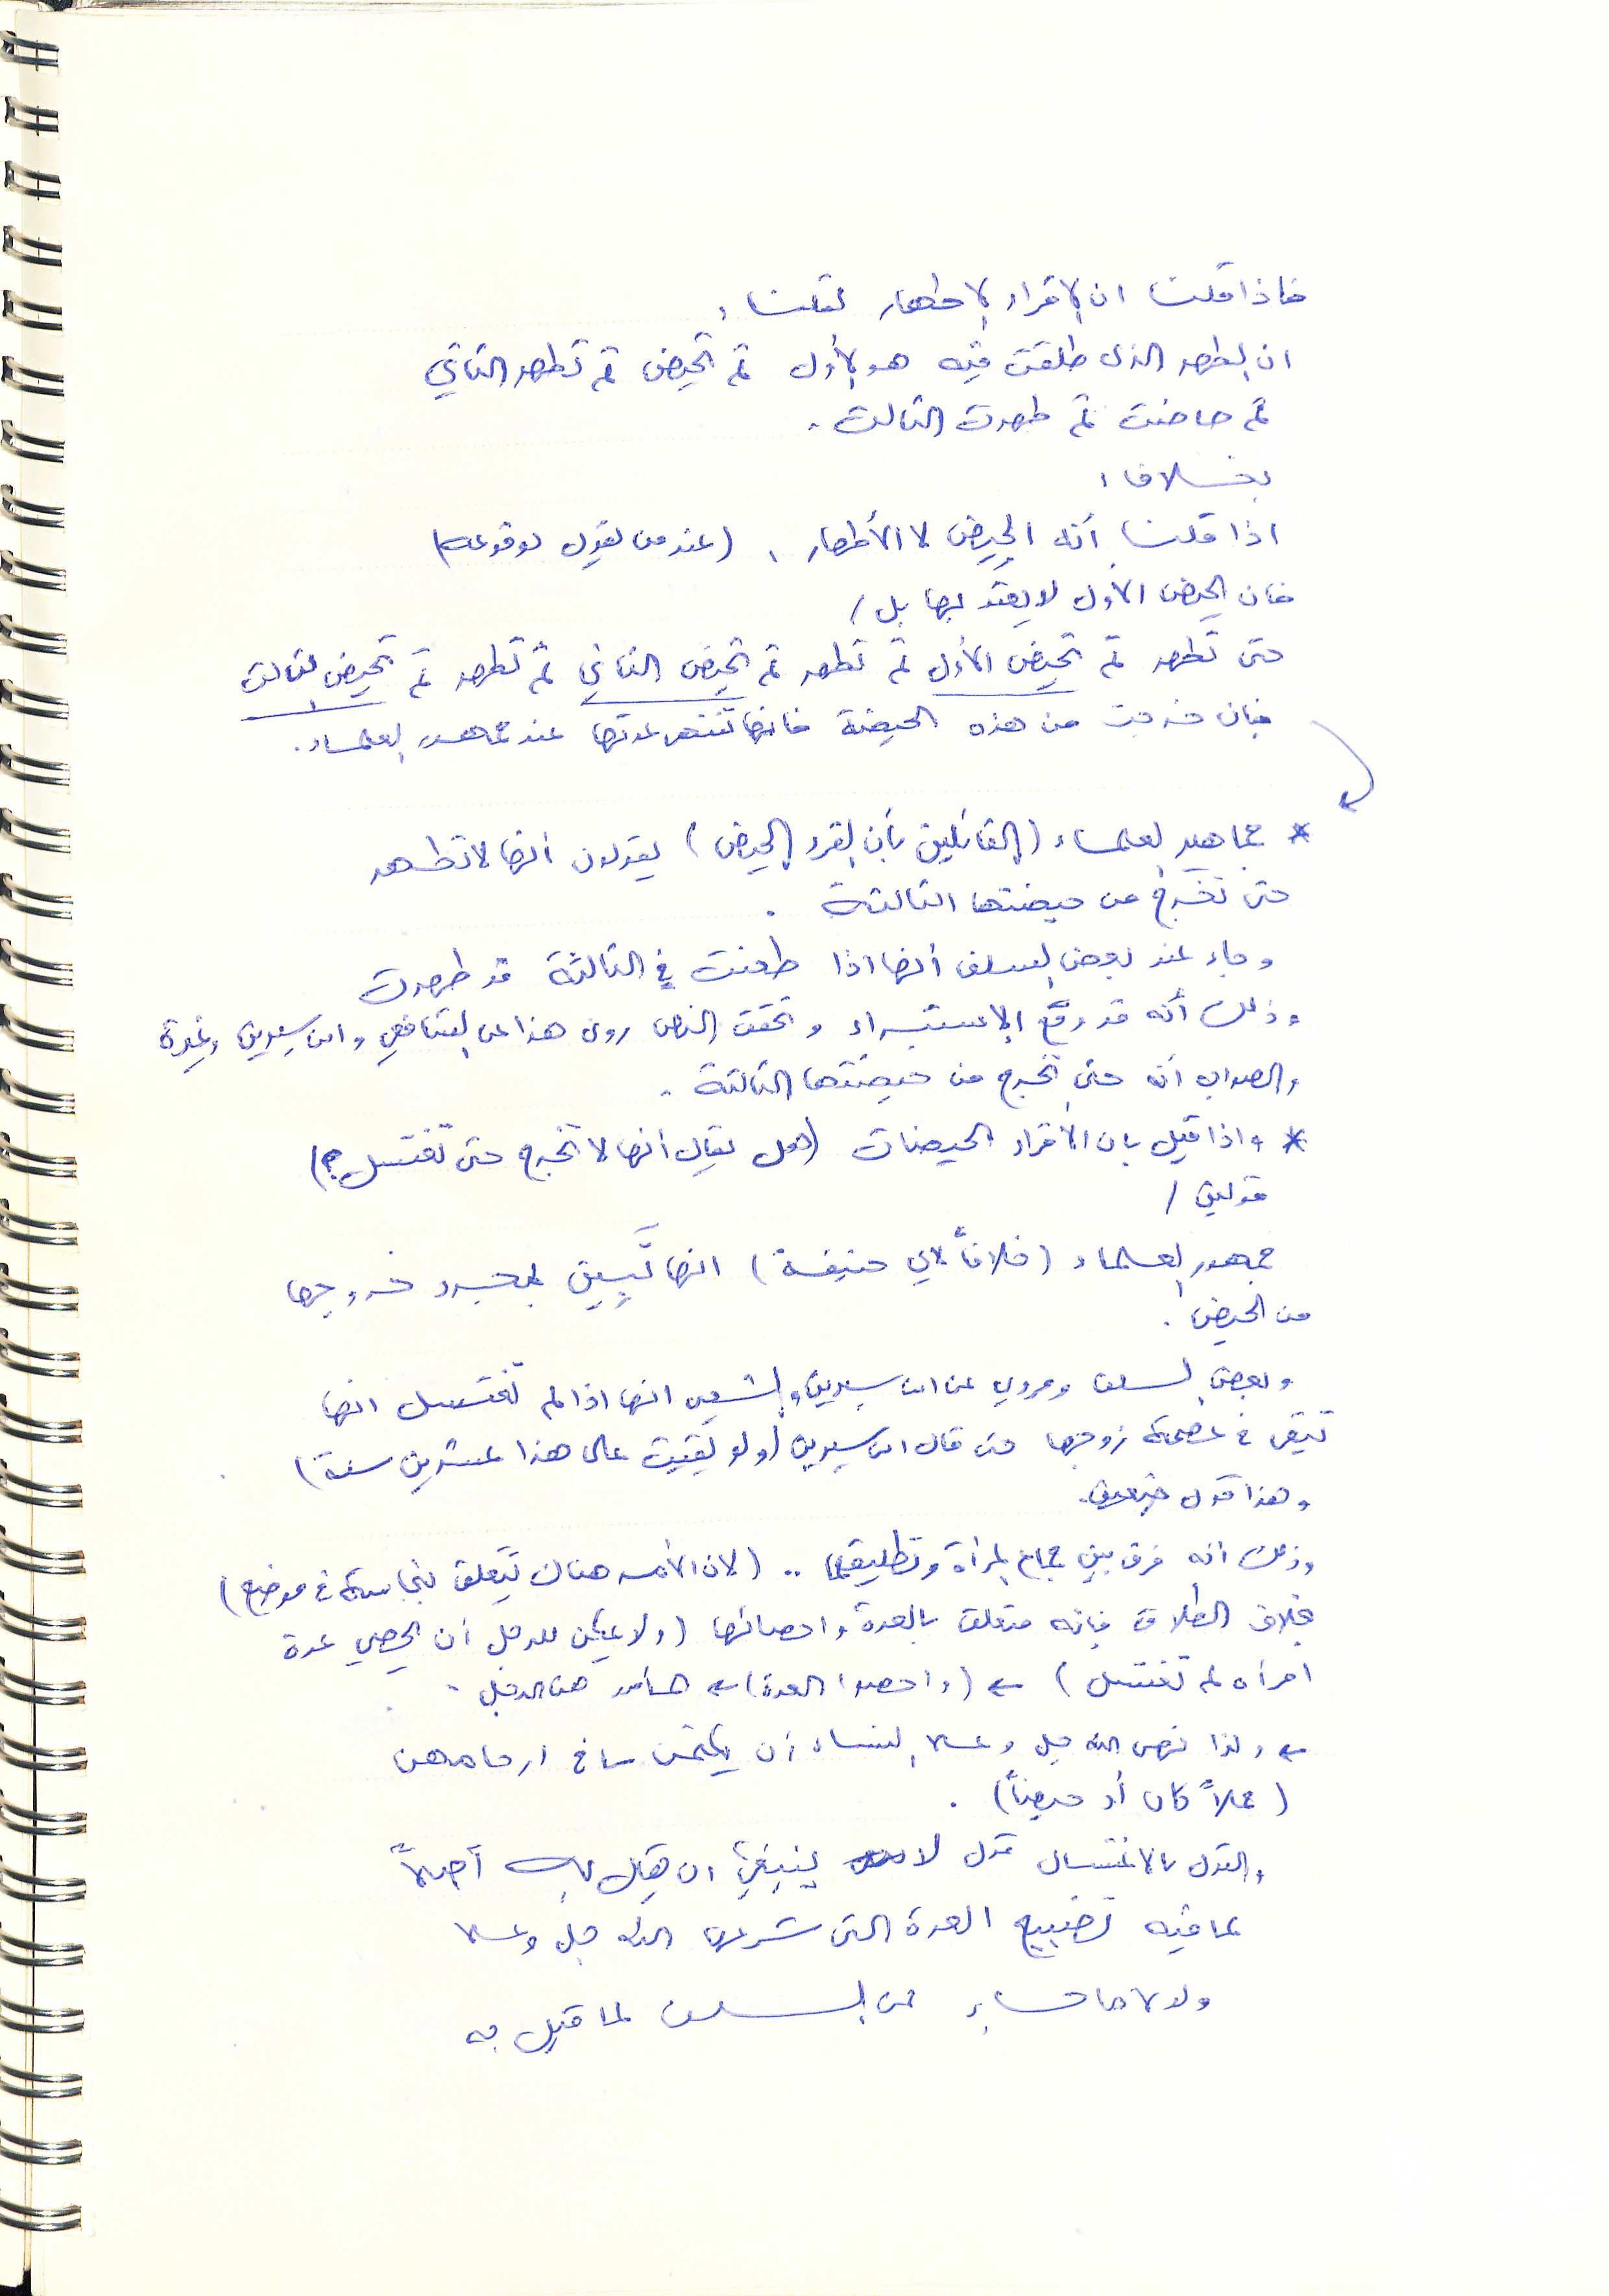 فاذا قلنا ان الاقراء الاطهار لقلنا :
ان الطهر الذي طلقت فيه هو الأول ثم تحيض ثم تطهر الثاني
ثم حاضت ثم طهرت الثالث .
بخلاف :
اذا قلنا أنه الحيض لا الأطهار ، (عند من يقول بوقوعه)
فان الحيض الأول لا يعتد بها بل /
حتى تطهر ثم تحيض الأول ثم تطهر ثم تحيض الثاني ثم تطهر ثم تحيض الثالث
فان خرجت من هذه الحيضة فانها تنتهي عدتها عند جمهور العلماء .
* جماهير العلماء (القائلين بأن القرء الحيض) يقولون أنها لا تطهر
حتى تخرج من حيضتها الثالثة .
وجاء عند بعض السلف أنها اذا طعنت في الثالثة قد طهرت
وذلك أنه قد وقع الاستبراء وتحقق النص روى هذا عن الشافعي وابن سيرين وغيره
والصواب أنه حتى تخرج من حيضتها الثالثة .
* واذا قيل بان الأقراء الحيضات (هل يقال أنها لا تخرج حتى تغتسل ؟)
قولين /
جمهور العلماء (خلافاً لأبي حنيفة) انها تَبِين بمجرد خروجها
من الحيض .
وبعض السلف ومروي عن ابن سيرين والشعبي انها اذا لم تغتسل انها
تبقى في عصمة زوجها حتى قال ابن سيرين (ولو بقيت على هذا عشرين سنة)
وهذا قول ضعيف .
وذلك أنه فرق بين جماع المرأة وتطليقها .. (لان الأمر هناك يتعلق بنجاسة في موضع)
بخلاف الطلاق فانه متعلق بالعدة واحصائها (ولا يمكن للرجل أن يحصي عدة
امرأه لم تغتسل) ← (واحصوا العدة) ← المأمور هنا الرجل .
← ولذا نهى الله جل وعلا النساء أن يكتمن ما في ارحامهن
(حملاً كان أو حيضاً) .
والقول بالاغتسال قول لا ينبغي ان يقال به أصلاً
لما فيه تضييع العدة التي شرعها الله جل وعلا
ولولا ما جاء عن السلف لما قيل به